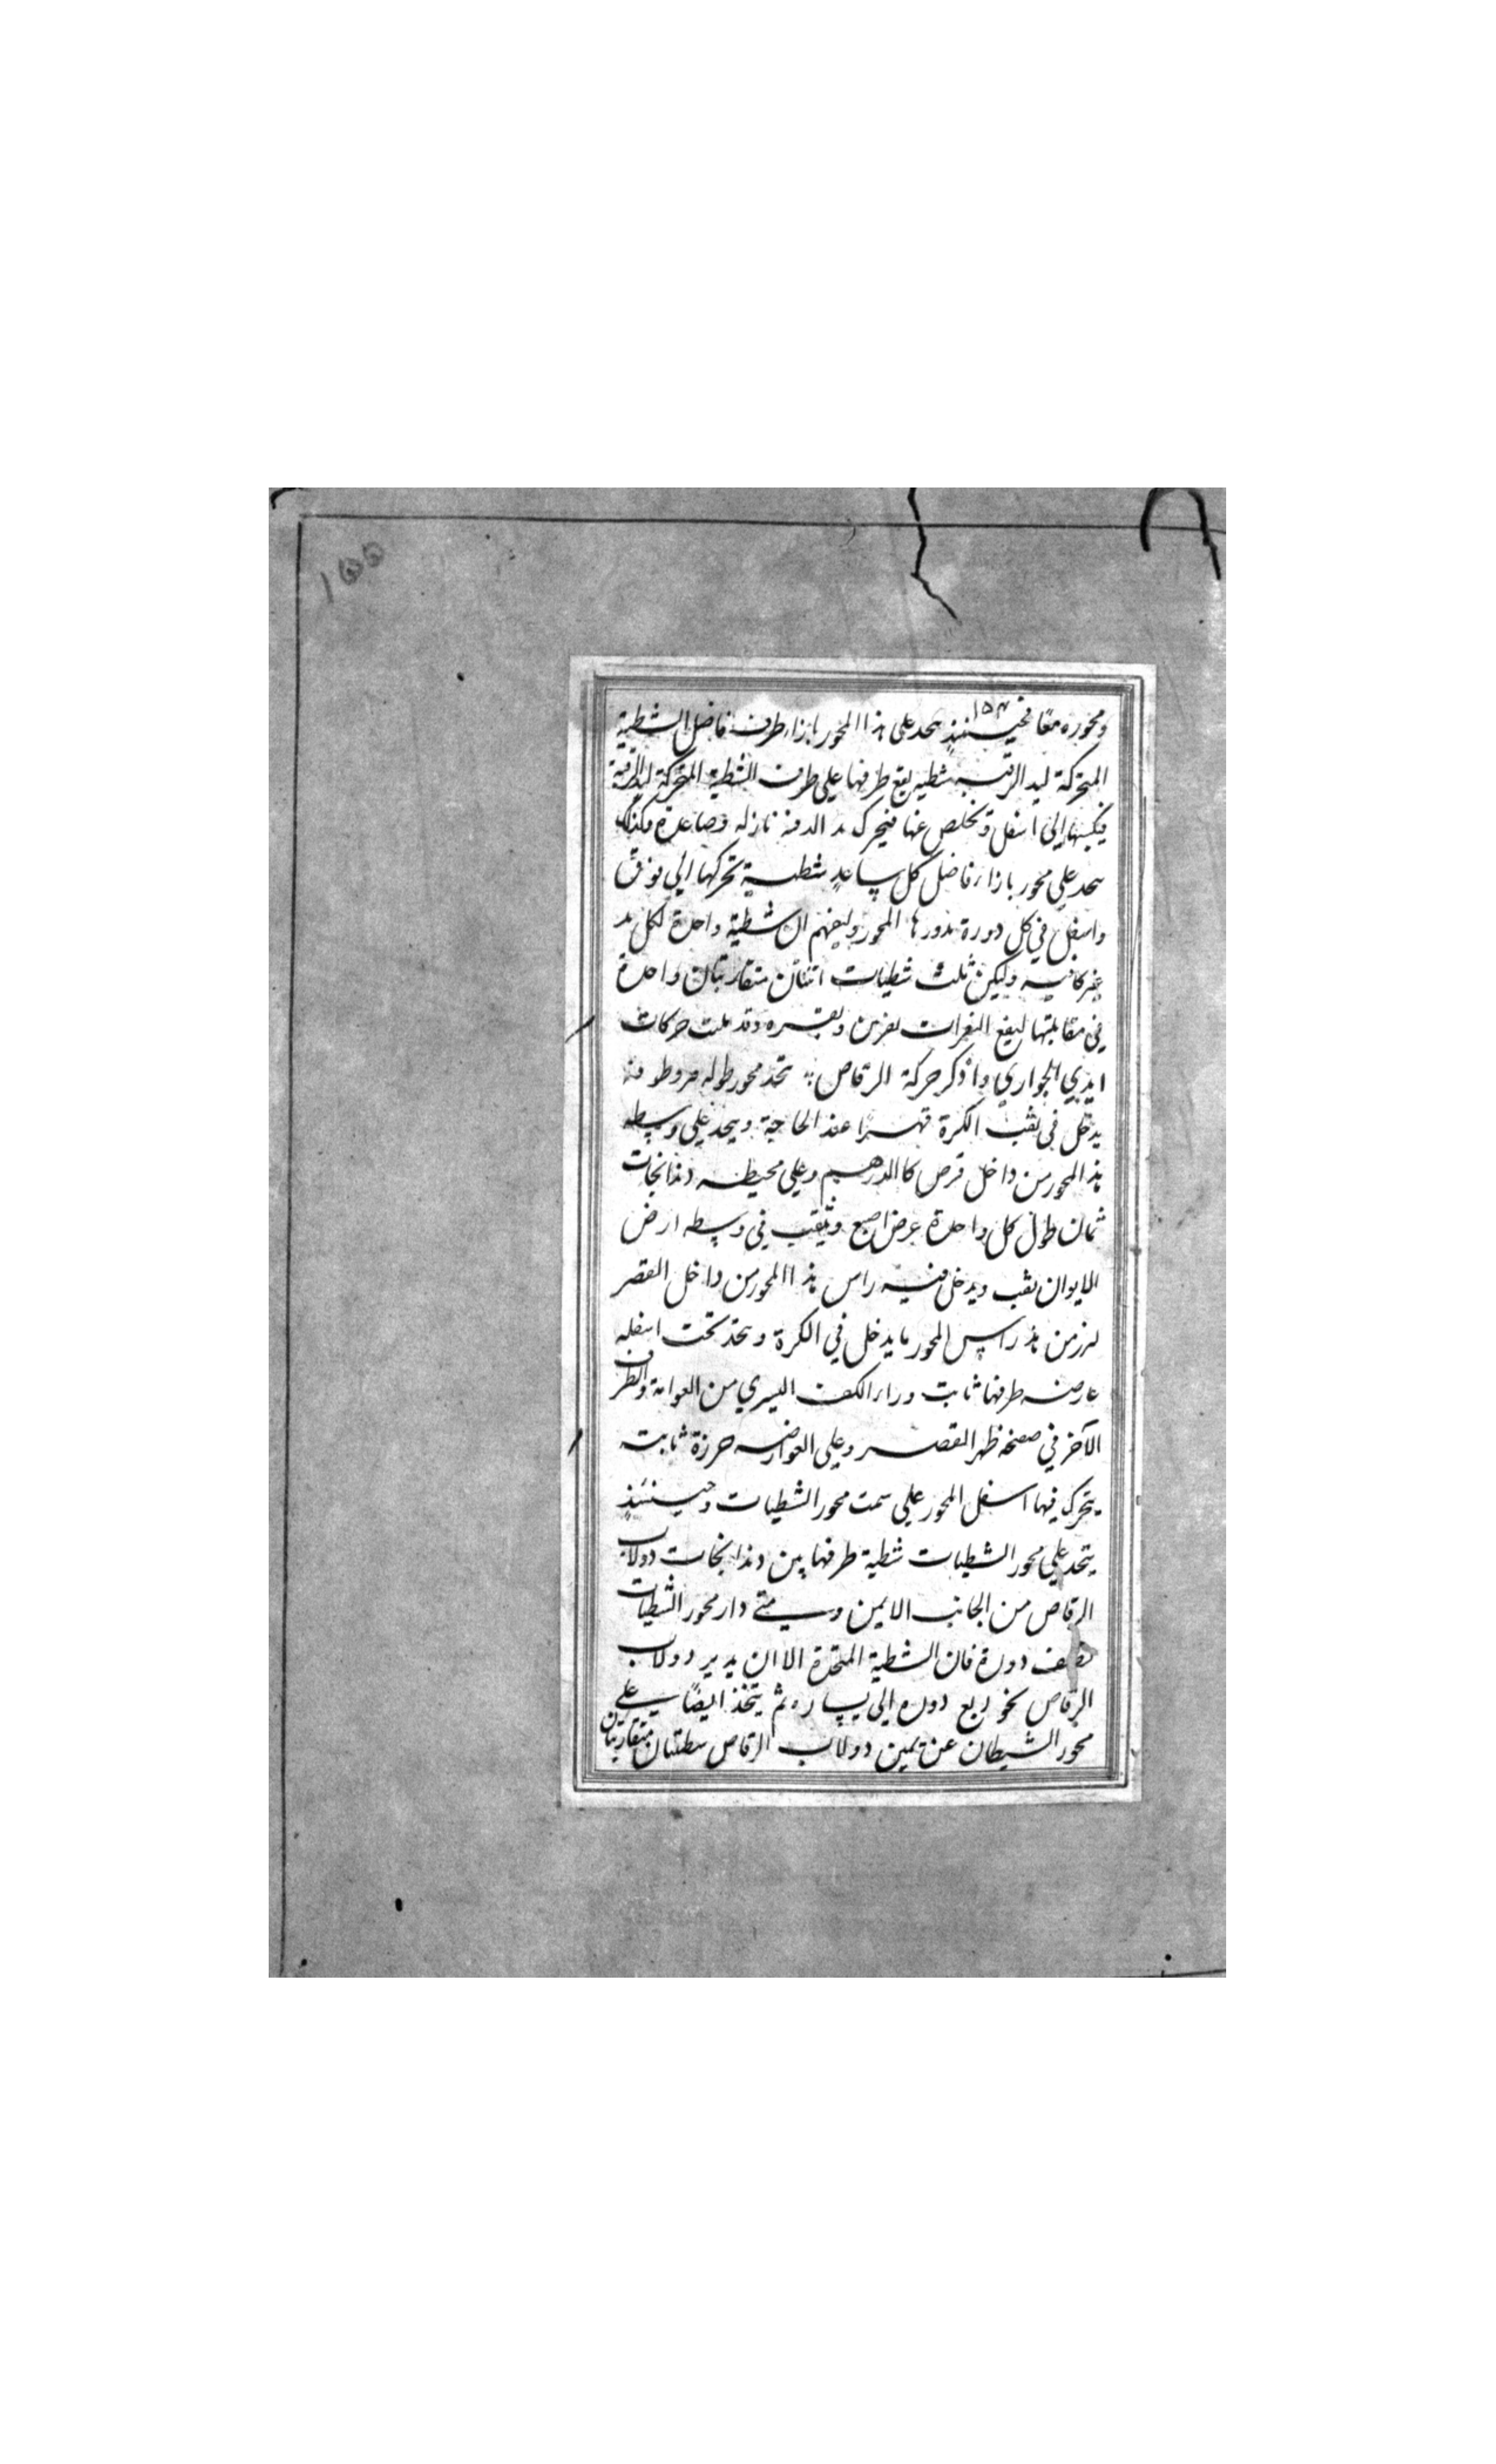 ١٥٥
١٥٣
ومحوره معًا فحينئذٍ يتخذ على هذا المحور بازاء طرف فاضل الشطية
المتحركة ليد الرقيبه شطيه يقع طرفها على طرف الشطية المتحركة ليد الرقيبة
فيكبسها الى اسفل وتخلص عنها فيتحرك يد الدفيه نازله وصاعدة وكذلك
يتخذ على محور بازاء فاضل كل ساعد شطيه تحركها الي فوق
واسفل في كل دورة يدورها المحور وليفهم ان شطية واحدة لكل يد
غير كافيه وليكن ثلث شطيات اثنتان متقاربتان واحدة
في مقابلتها ليقع النقرات نقرتين ونقره وقد حركات
ايدي الجواري واذكر حركة الرقاص يتخذ محور طوله طرفه
يدخل في ثقب الكرة قهرًا عند الحاجة ويتخذ علي وسطه
هذا المحور من داخل قرص كالدرهم وعلي محيطه دندانجات
ثمان طول كل واحدة عرض اصبع وثيقب في وسطه ارض
الايوان ثقب ويدخل فيه راس هذا المحور من داخل القصر
ليبرز من هذ راس المحور ما يدخل في الكرة ويتخذ تحت اسفله
عارضه طرفها ثابت وراء الكف اليسري من العوامة والطرف
الآخر في صفحة ظهر القصر وعلي العوارضه خرزة ثابت
يتحرك فيها اسفل المحور علي سمت محور الشطيات وحينئذٍ
يتخذ علي محور الشطيات شطية طرفها بين دندانجات دولاب
الرقاص من الجانب الايمن ومتي دار محور الشطيات
نصف دورة فان الشطية المتخذة الاان يدير دولاب
الرقاص نحو ربع دوره الي يساره ثم يتخذ ايضًا علي
محور الشيطان عن يمين دولاب الرقاص شطيتان متقاربتان